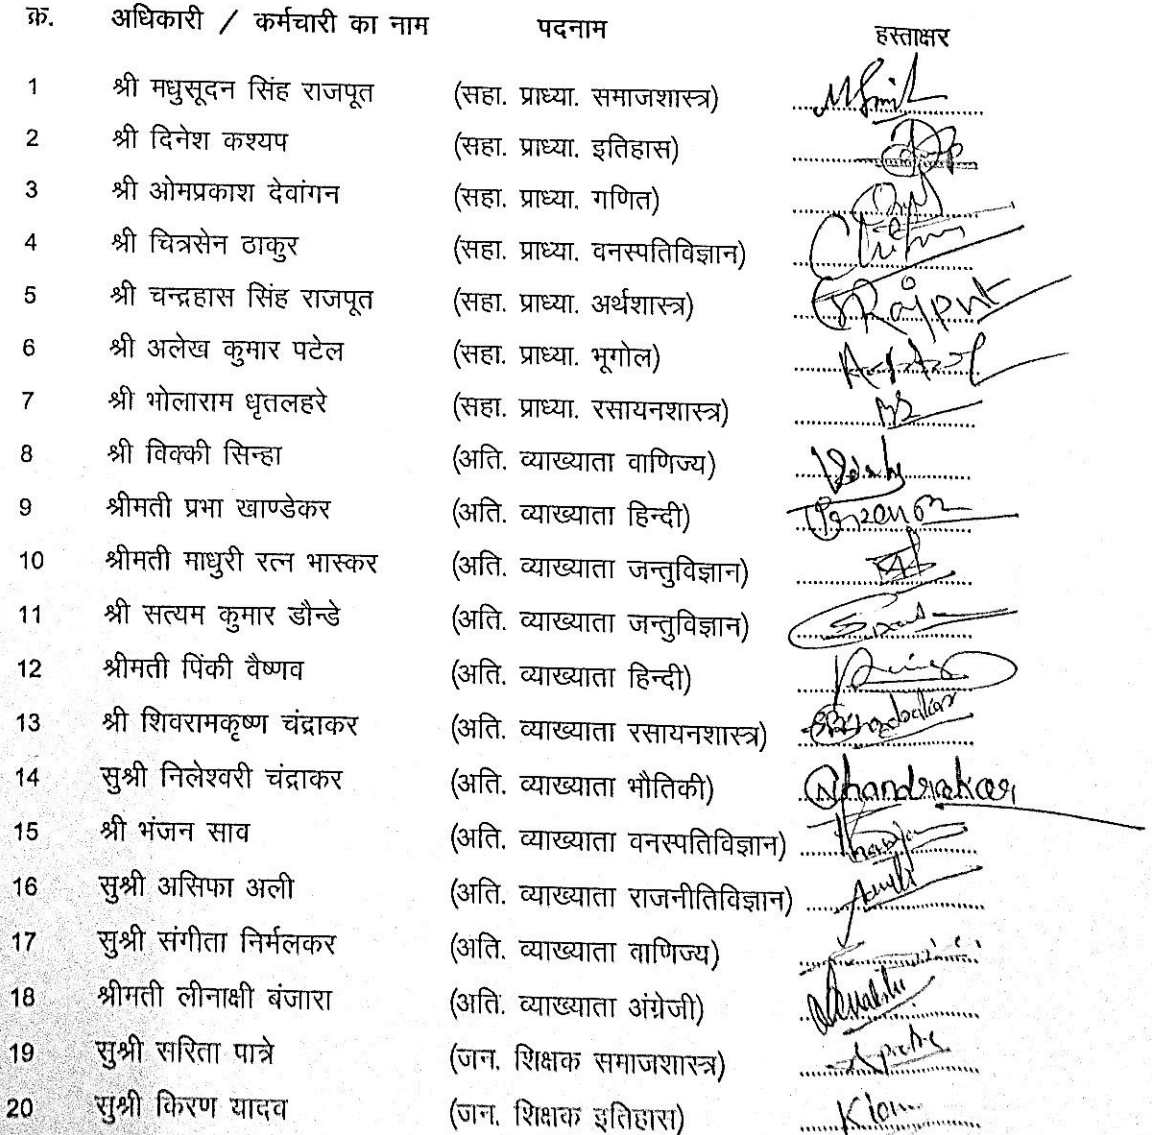 क्र. अधिकारी / कर्मचारी का नाम पदनाम हस्ताक्षर
1 श्री मधुसूदन सिंह राजपूत (सहा. प्राध्या. समाजशास्त्र)
2 श्री दिनेश कश्यप (सहा. प्राध्या. इतिहास)
3 श्री ओमप्रकाश देवांगन (सहा. प्राध्या. गणित)
4 श्री चित्रसेन ठाकुर (सहा. प्राध्या. वनस्पतिविज्ञान)
5 श्री चन्द्रहास सिंह राजपूत (सहा. प्राध्या. अर्थशास्त्र) Rajput
6 श्री अलेख कुमार पटेल (सहा. प्राध्या. भूगोल)
7 श्री भोलाराम धृतलहरे (सहा. प्राध्या. रसायनशास्त्र)
8 श्री विक्की सिन्हा (अति. व्याख्याता वाणिज्य)
9 श्रीमती प्रभा खाण्डेकर (अति. व्याख्याता हिन्दी)
10 श्रीमती माधुरी रत्न भास्कर (अति. व्याख्याता जन्तुविज्ञान)
11 श्री सत्यम कुमार डौन्डे (अति. व्याख्याता जन्तुविज्ञान)
12 श्रीमती पिंकी वैष्णव (अति. व्याख्याता हिन्दी)
13 श्री शिवरामकृष्ण चंद्राकर (अति. व्याख्याता रसायनशास्त्र)
14 सुश्री निलेश्वरी चंद्राकर (अति. व्याख्याता भौतिकी) Chandrakar
15 श्री भंजन साव (अति. व्याख्याता वनस्पतिविज्ञान)
16 सुश्री असिफा अली (अति. व्याख्याता राजनीतिविज्ञान)
17 सुश्री संगीता निर्मलकर (अति. व्याख्याता वाणिज्य)
18 श्रीमती लीनाक्षी बंजारा (अति. व्याख्याता अंग्रेजी)
19 सुश्री सरिता पात्रे (जन. शिक्षक समाजशास्त्र)
20 सुश्री किरण यादव (जन. शिक्षक इतिहास)